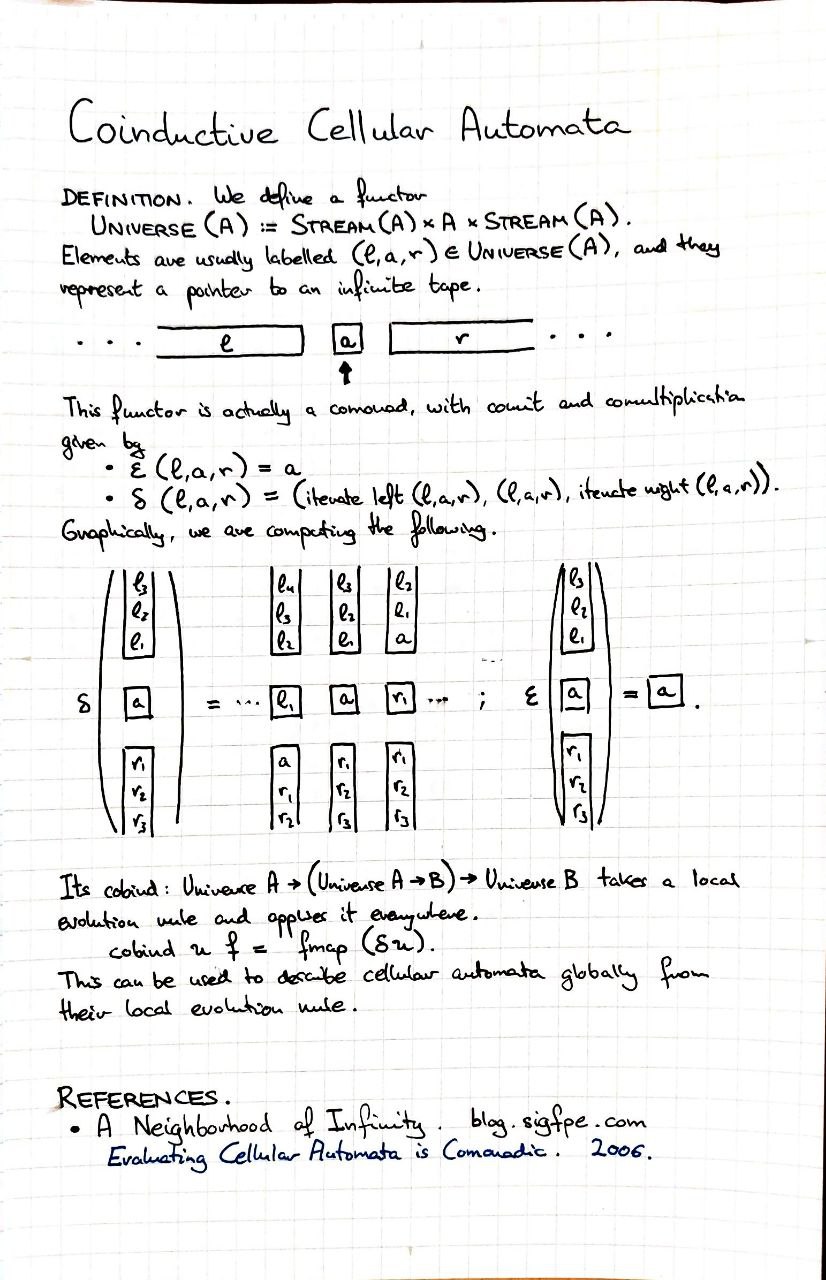 Coinductive Cellular Automata
DEFINITION. We define a functor
UNIVERSE (A) := STREAM (A) × A × STREAM (A).
Elements are usually labelled (l, a, r) ∈ UNIVERSE (A), and they
represent a pointer to an infinite tape.
. . . l a r . . .
This functor is actually a comonad, with counit and comultiplication
given by
• ε (l, a, r) = a
• δ (l, a, r) = (iterate left (l, a, r), (l, a, r), iterate right (l, a, r)).
Graphically, we are computing the following.
l₃ l₄ l₃ l₂ l₃
l₂ l₃ l₂ l₁ l₂
l₁ l₂ l₁ a l₁
δ a = ... l₁ a r₁ ... ; ε a = a .
r₁ a r₁ r₁ r₁
r₂ r₁ r₂ r₂ r₂
r₃ r₂ r₃ r₃ r₃
Its cobind : Universe A → (Universe A → B) → Universe B takes a local
evolution rule and applies it everywhere.
cobind u f = fmap (δu).
This can be used to describe cellular automata globally from
their local evolution rule.
REFERENCES.
• A Neighborhood of Infinity. blog.sigfpe.com
Evaluating Cellular Automata is Comonadic. 2006.